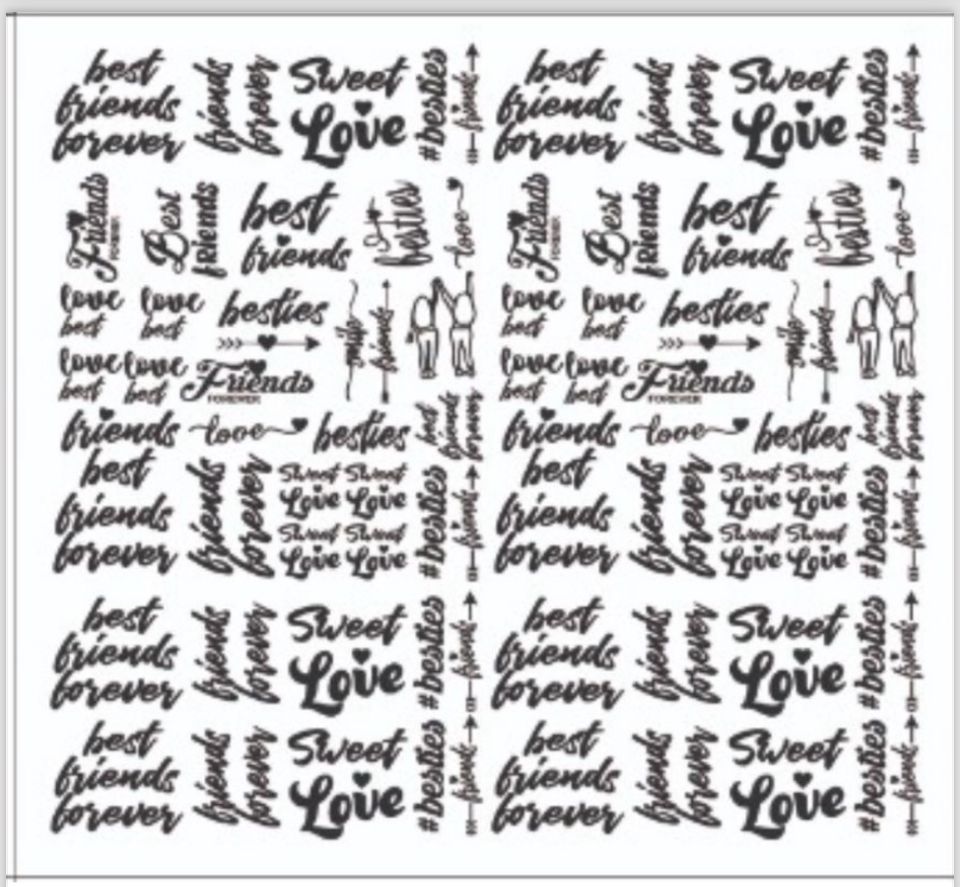 best
friends
forever
friends
forever
Sweet
Love
#besties
friends
best
friends
forever
friends
forever
Sweet
Love
#besties
friends
Friends
FOREVER
Best
Friends
best
friends
besties
love
Friends
FOREVER
Best
Friends
best
friends
besties
love
love
best
love
best
besties
love
best
love
best
Friends
FOREVER
smile
friends
love
best
love
best
besties
love
best
love
best
Friends
FOREVER
smile
friends
friends
love
besties
best
friends
forever
friends
love
besties
best
friends
forever
best
friends
forever
friends
forever
Sweet
Love
Sweet
Love
Sweet
Love
Sweet
Love
#besties
friends
best
friends
forever
friends
forever
Sweet
Love
Sweet
Love
Sweet
Love
Sweet
Love
#besties
friends
best
friends
forever
friends
forever
Sweet
Love
#besties
friends
best
friends
forever
friends
forever
Sweet
Love
#besties
friends
best
friends
forever
friends
forever
Sweet
Love
#besties
friends
best
friends
forever
friends
forever
Sweet
Love
#besties
friends